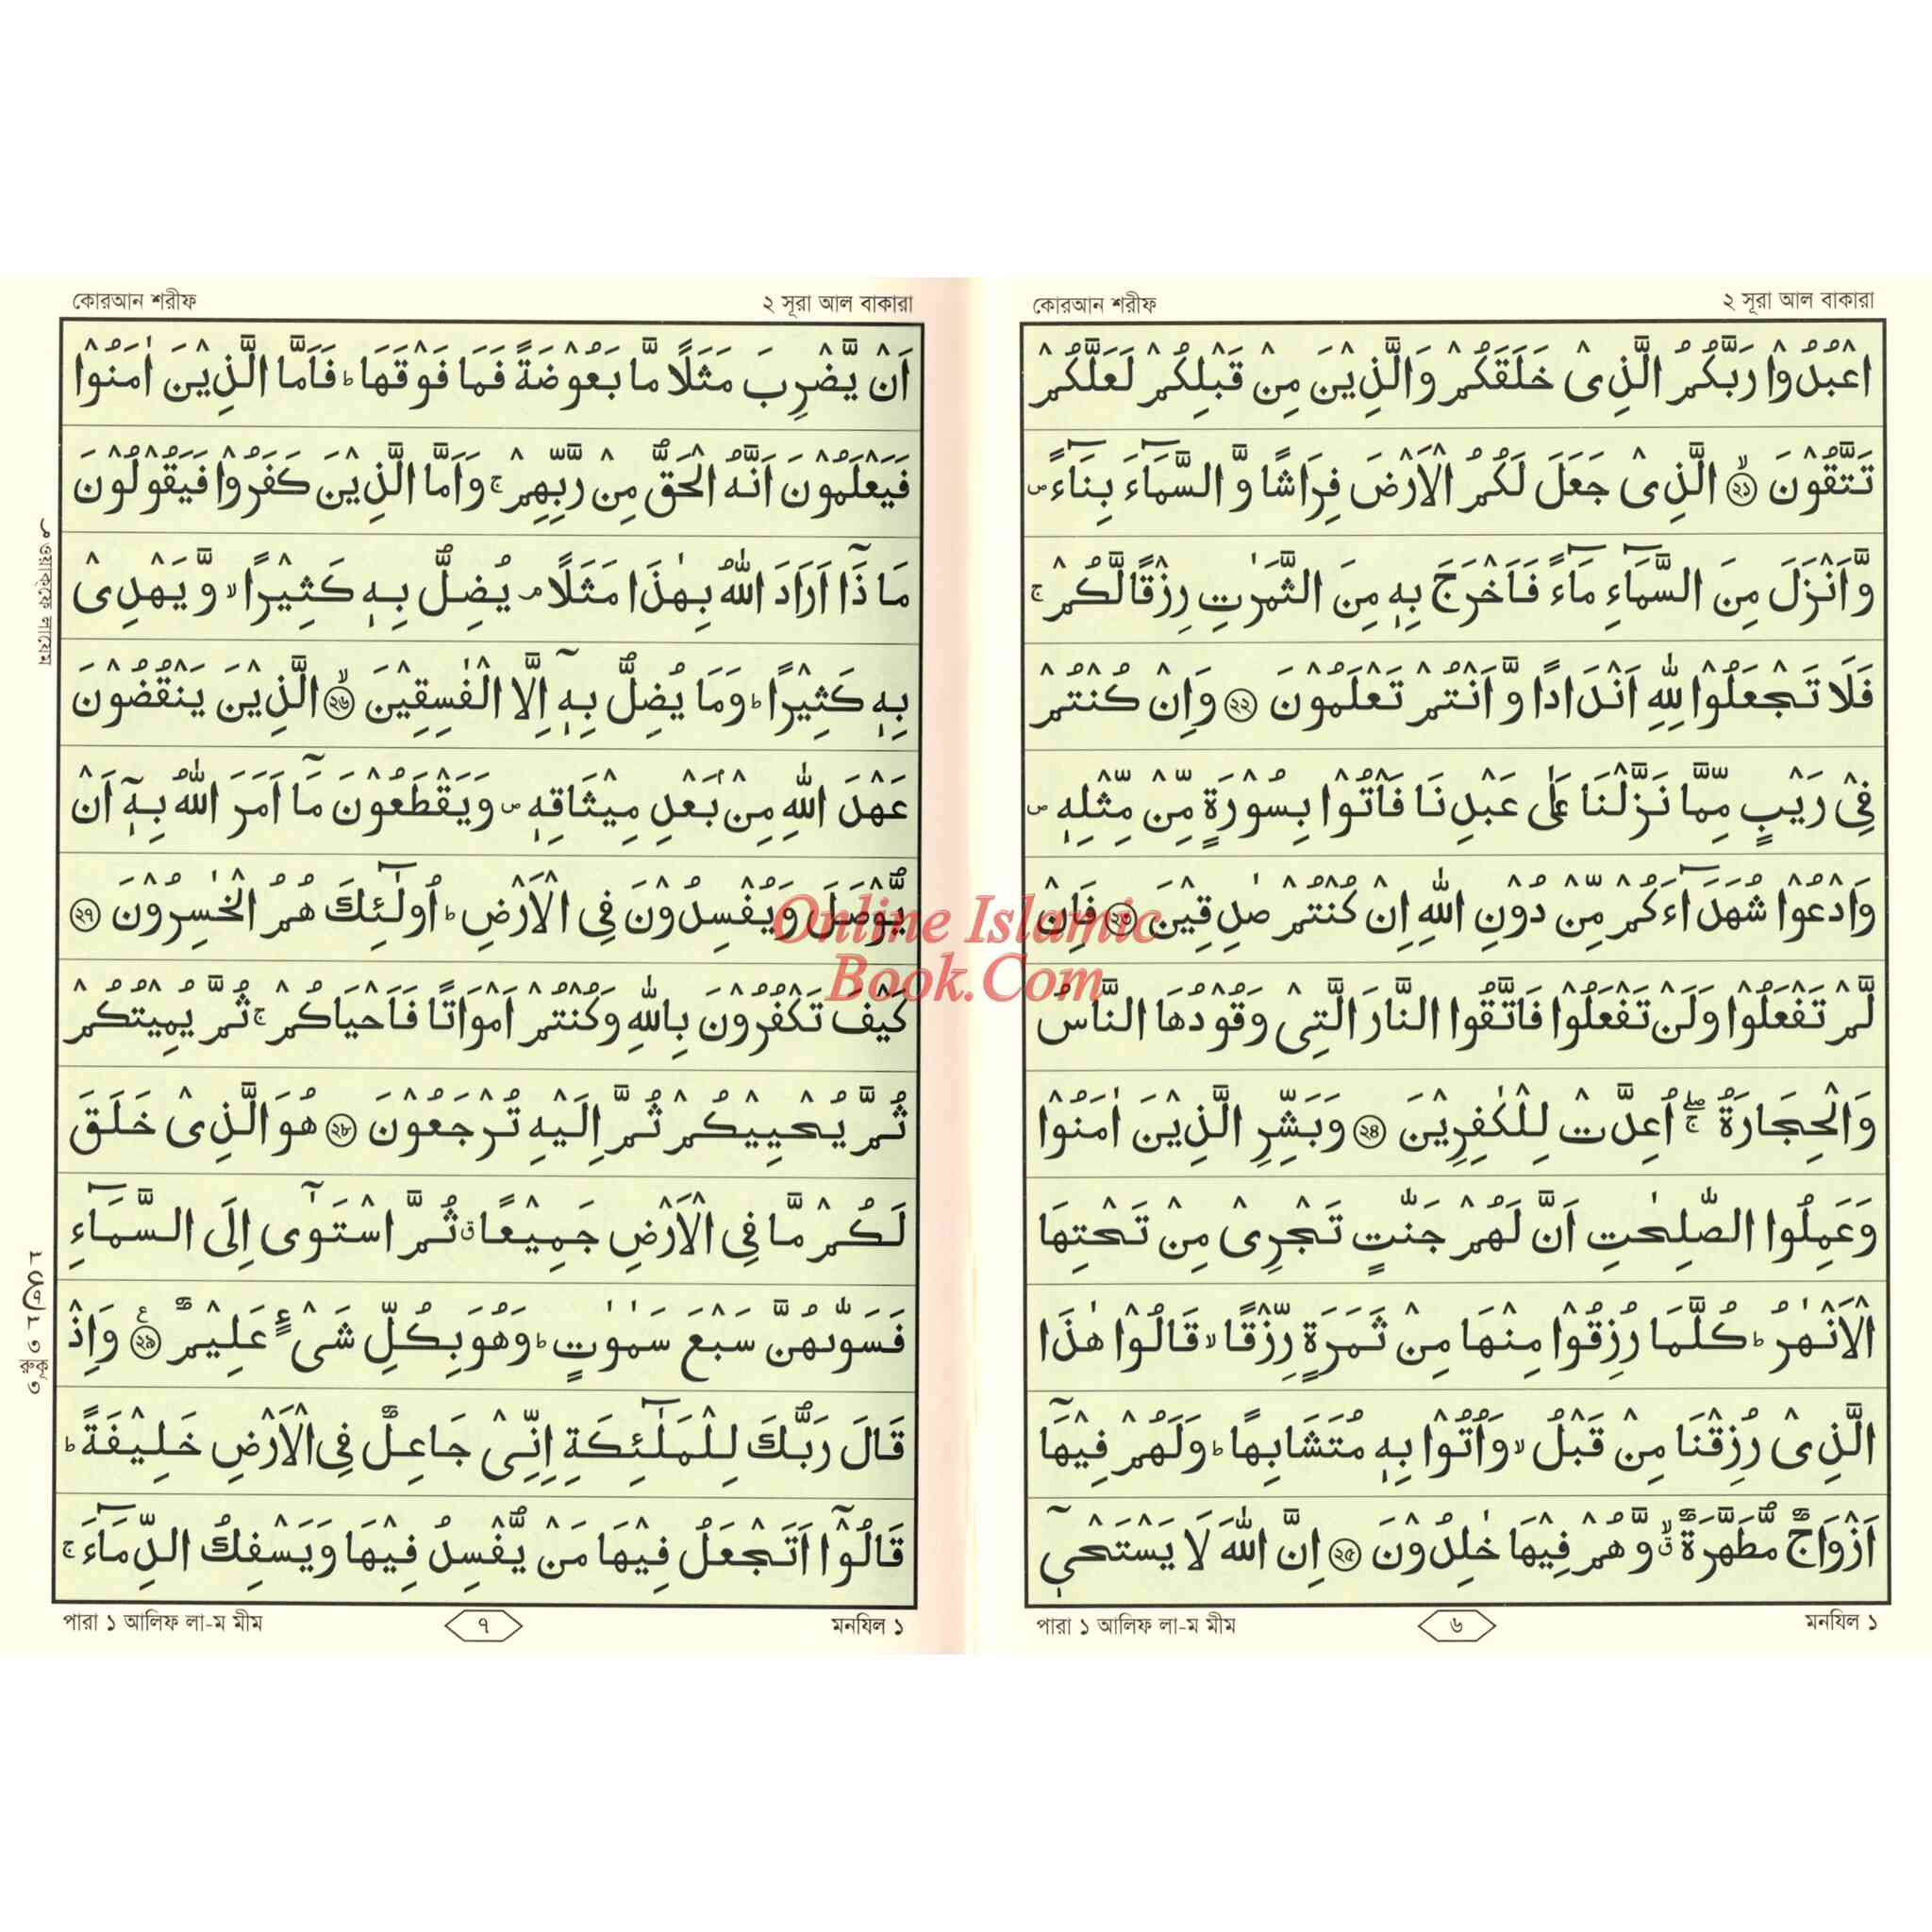 ২ সূরা আল বাকারা
কোরআন শরীফ
اعْبُدُوْا رَبَّكُمُ الَّذِىْ خَلَقَكُمْ وَالَّذِيْنَ مِنْ قَبْلِكُمْ لَعَلَّكُمْ
تَتَّقُوْنَ ۙ﴿২১﴾ الَّذِىْ جَعَلَ لَكُمُ الْاَرْضَ فِرَاشًا وَّ السَّمَآءَ بِنَآءً ۪
وَّاَنْزَلَ مِنَ السَّمَآءِ مَآءً فَاَخْرَجَ بِهٖ مِنَ الثَّمَرٰتِ رِزْقًا لَّكُمْ ۚ
فَلَا تَجْعَلُوْا لِلّٰهِ اَنْدَادًا وَّ اَنْتُمْ تَعْلَمُوْنَ ﴿২২﴾ وَاِنْ كُنْتُمْ
فِىْ رَيْبٍ مِّمَّا نَزَّلْنَا عَلٰى عَبْدِنَا فَاْتُوْا بِسُوْرَةٍ مِّنْ مِّثْلِهٖ ۪
وَادْعُوْا شُهَدَآءَكُمْ مِّنْ دُوْنِ اللّٰهِ اِنْ كُنْتُمْ صٰدِقِيْنَ ﴿২৩﴾ فَاِنْ
لَّمْ تَفْعَلُوْا وَلَنْ تَفْعَلُوْا فَاتَّقُوا النَّارَ الَّتِىْ وَقُوْدُهَا النَّاسُ
وَالْحِجَارَةُ ۖۚ اُعِدَّتْ لِلْكٰفِرِيْنَ ﴿২৪﴾ وَبَشِّرِ الَّذِيْنَ اٰمَنُوْا
وَعَمِلُوا الصّٰلِحٰتِ اَنَّ لَهُمْ جَنّٰتٍ تَجْرِىْ مِنْ تَحْتِهَا
الْاَنْهٰرُ ؕ كُلَّمَا رُزِقُوْا مِنْهَا مِنْ ثَمَرَةٍ رِّزْقًا ۙ قَالُوْا هٰذَا
الَّذِىْ رُزِقْنَا مِنْ قَبْلُ ۙ وَاُتُوْا بِهٖ مُتَشَابِهًا ؕ وَلَهُمْ فِيْهَآ
اَزْوَاجٌ مُّطَهَّرَةٌ ۙۗ وَّهُمْ فِيْهَا خٰلِدُوْنَ ﴿২৫﴾ اِنَّ اللّٰهَ لَا يَسْتَحْىٖٓ
মনযিল ১
৬
পারা ১ আলিফ লা-ম মীম
২ সূরা আল বাকারা
কোরআন শরীফ
اَنْ يَّضْرِبَ مَثَلًا مَّا بَعُوْضَةً فَمَا فَوْقَهَا ؕ فَاَمَّا الَّذِيْنَ اٰمَنُوْا
فَيَعْلَمُوْنَ اَنَّهُ الْحَقُّ مِنْ رَّبِّهِمْ ۚ وَاَمَّا الَّذِيْنَ كَفَرُوْا فَيَقُوْلُوْنَ
مَاذَآ اَرَادَ اللّٰهُ بِهٰذَا مَثَلًا ۘ يُضِلُّ بِهٖ كَثِيْرًا ۙ وَّيَهْدِىْ
بِهٖ كَثِيْرًا ؕ وَمَا يُضِلُّ بِهٖٓ اِلَّا الْفٰسِقِيْنَ ۙ﴿২৬﴾ الَّذِيْنَ يَنْقُضُوْنَ
عَهْدَ اللّٰهِ مِنْۢ بَعْدِ مِيْثَاقِهٖ ۪ وَيَقْطَعُوْنَ مَآ اَمَرَ اللّٰهُ بِهٖٓ اَنْ
يُّوْصَلَ وَيُفْسِدُوْنَ فِى الْاَرْضِ ؕ اُولٰٓئِكَ هُمُ الْخٰسِرُوْنَ ﴿২৭﴾
كَيْفَ تَكْفُرُوْنَ بِاللّٰهِ وَكُنْتُمْ اَمْوَاتًا فَاَحْيَاكُمْ ۚ ثُمَّ يُمِيْتُكُمْ
ثُمَّ يُحْيِيْكُمْ ثُمَّ اِلَيْهِ تُرْجَعُوْنَ ﴿২৮﴾ هُوَ الَّذِىْ خَلَقَ
لَكُمْ مَّا فِى الْاَرْضِ جَمِيْعًا ۗ ثُمَّ اسْتَوٰٓى اِلَى السَّمَآءِ
فَسَوّٰىهُنَّ سَبْعَ سَمٰوٰتٍ ؕ وَهُوَ بِكُلِّ شَىْءٍ عَلِيْمٌ ﴿২৯﴾ۧ وَاِذْ
قَالَ رَبُّكَ لِلْمَلٰٓئِكَةِ اِنِّىْ جَاعِلٌ فِى الْاَرْضِ خَلِيْفَةً ؕ
قَالُوْٓا اَتَجْعَلُ فِيْهَا مَنْ يُّفْسِدُ فِيْهَا وَيَسْفِكُ الدِّمَآءَ ۚ
ওয়াক্বফে লাযেম
রুকু ৩
মনযিল ১
৭
পারা ১ আলিফ লা-ম মীম
Online Islamic
Book.Com